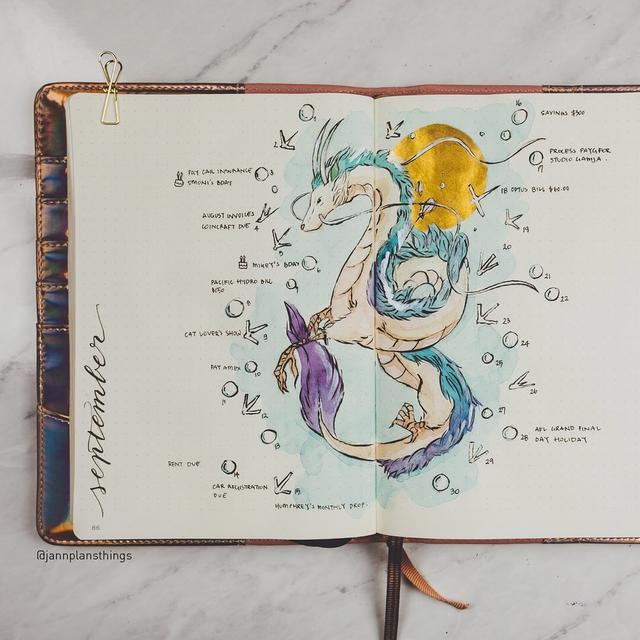 september
1
2
PAY CAR INSURANCE
SIMONE'S BDAY
3
AUGUST INVOICES
COINCRAFT DUE
4
5
MIKEY'S BDAY
6
PACIFIC HYDRO BILL
$150
7
8
CAT LOVER'S SHOW
9
PAY AMEX
10
11
12
13
RENT DUE
14
CAR REGISTRATION
DUE
15
HUMPHREY'S MONTHLY DROP.
86
16
SAVINGS $300
17
PROCESS PAYG FOR
STUDIO
18 OPTUS BILL $60.00
19
20
21
22
23
24
25
26
27
28
AFL GRAND FINAL
DAY HOLIDAY
29
30
@jannplansthings